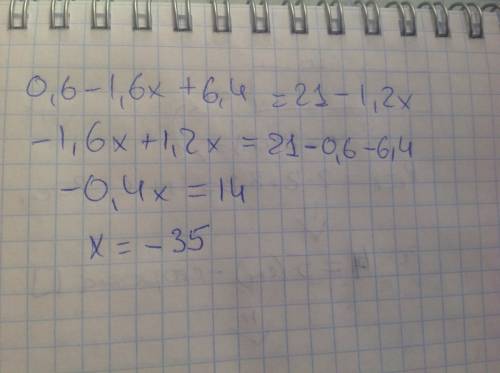 0,6-1,6x+6,4 =21-1,2x
-1,6x+1,2x=21-0,6-6,4
-0,4x=14
x=-35